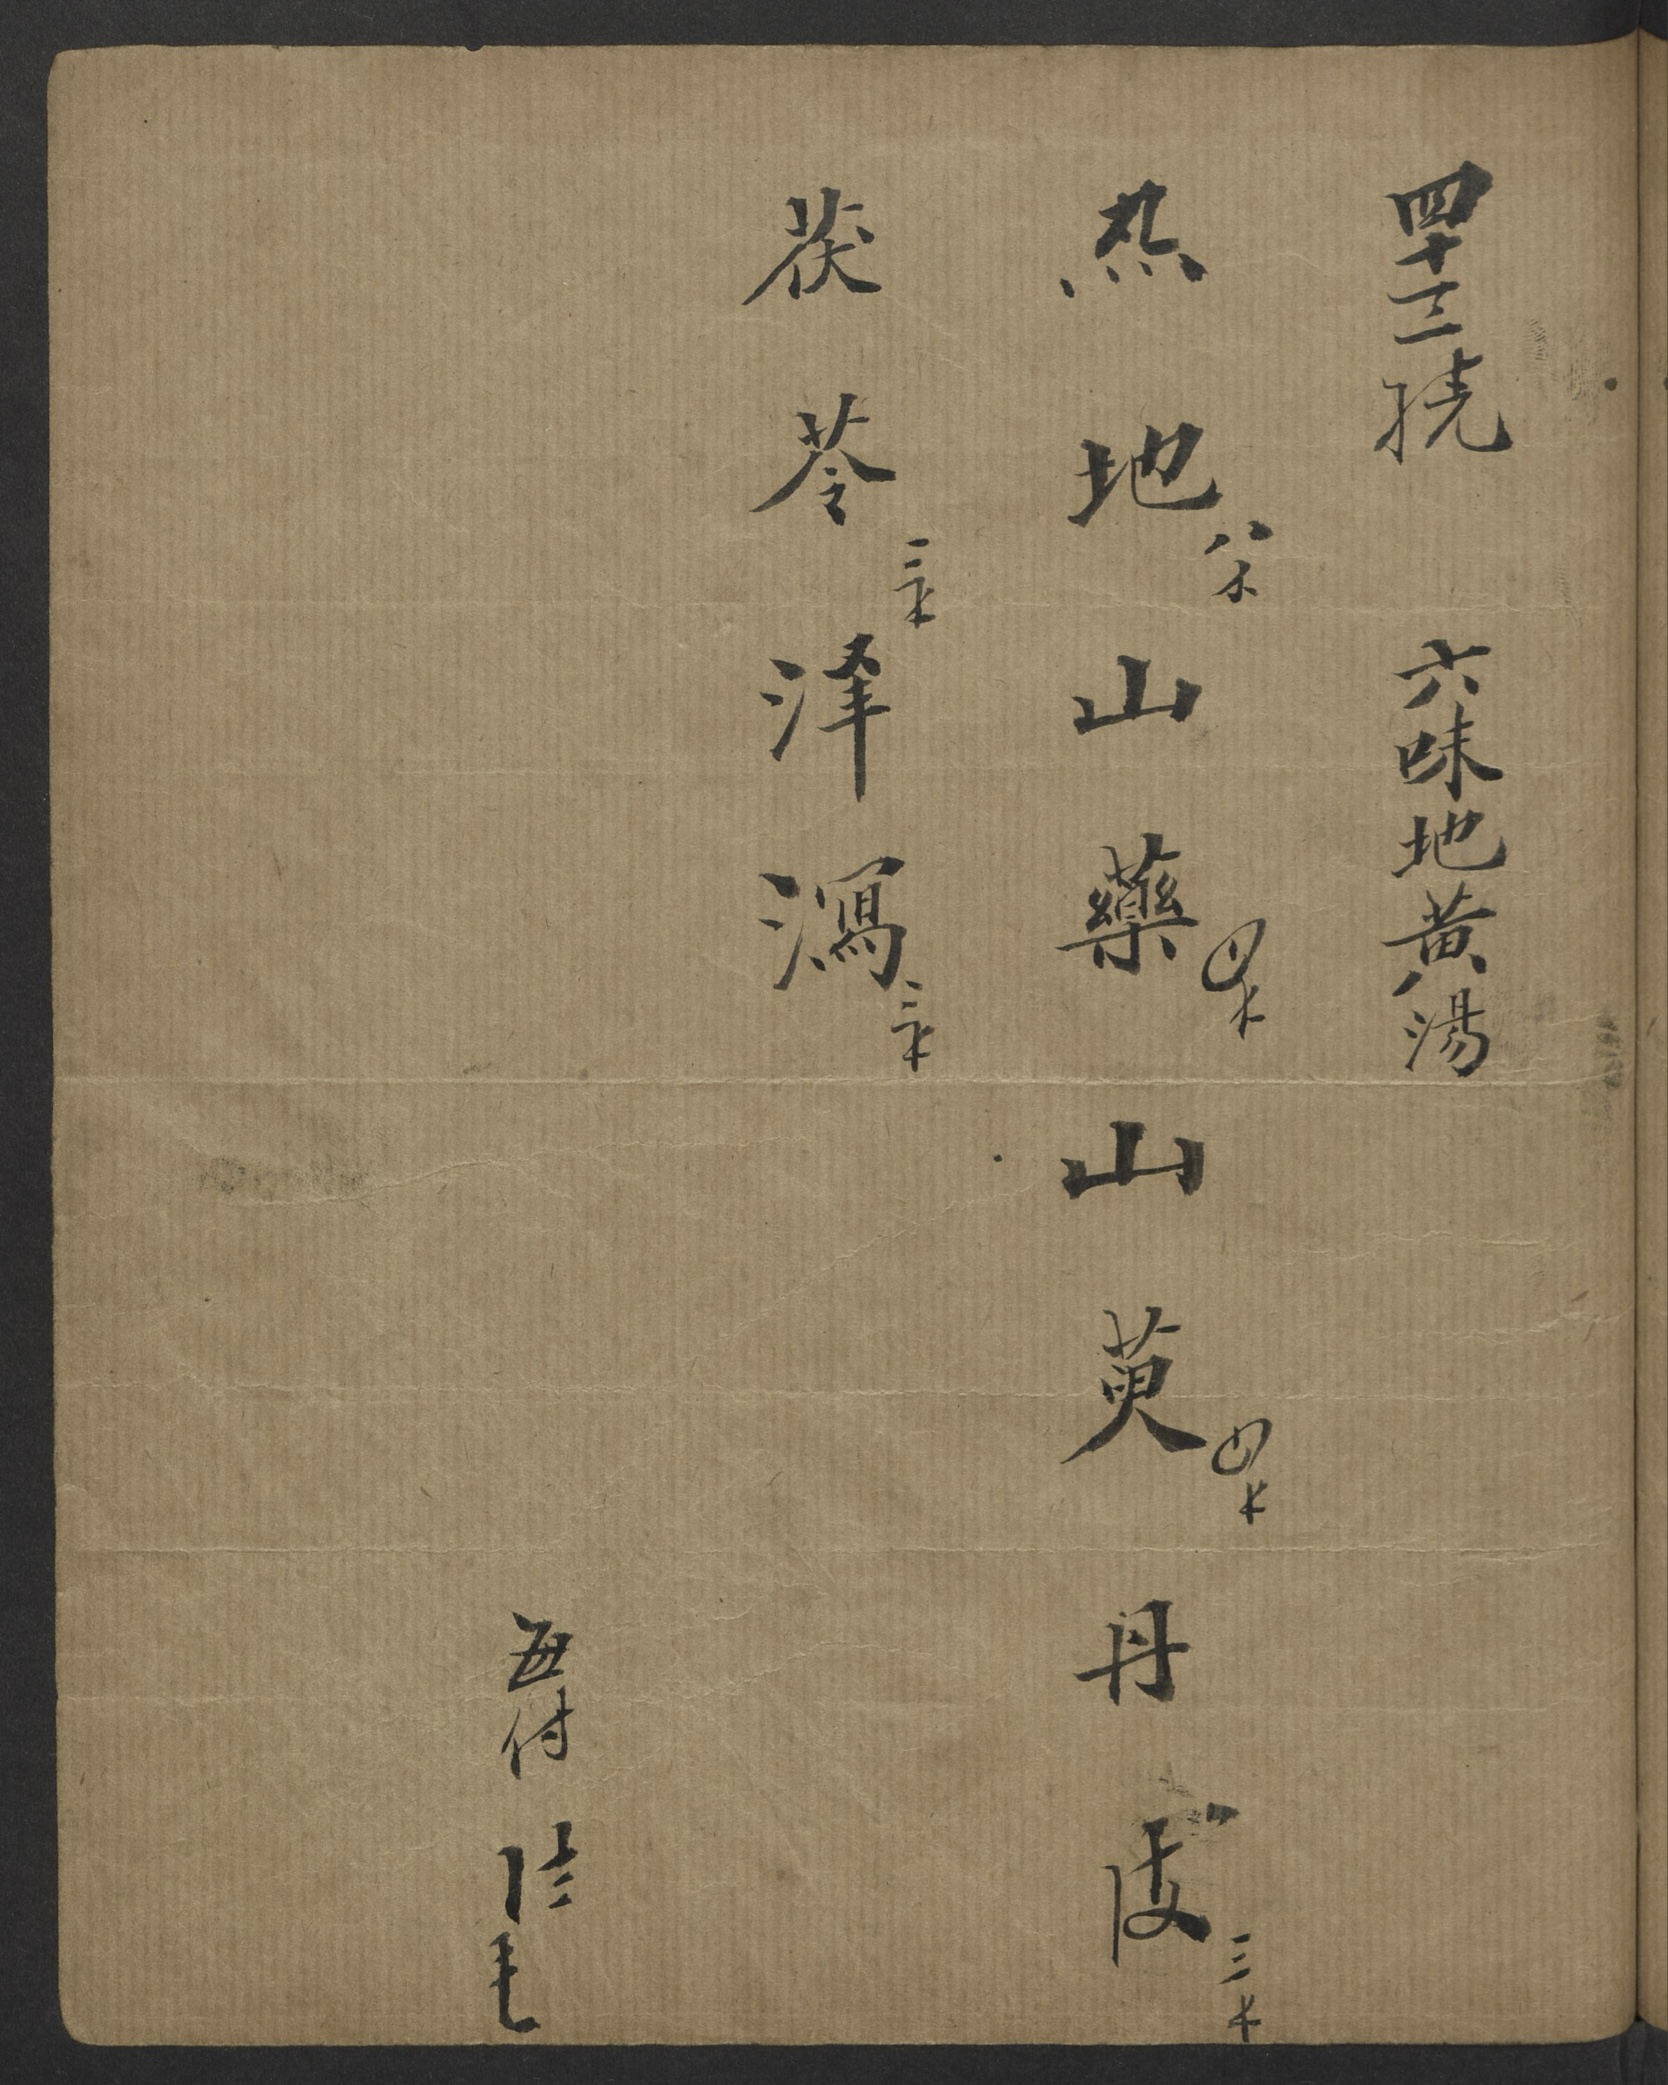 四十三號 六味地黃湯
熟地八錢山藥四錢山萸四錢丹皮三錢
茯苓三錢泽瀉三錢
每付 毛